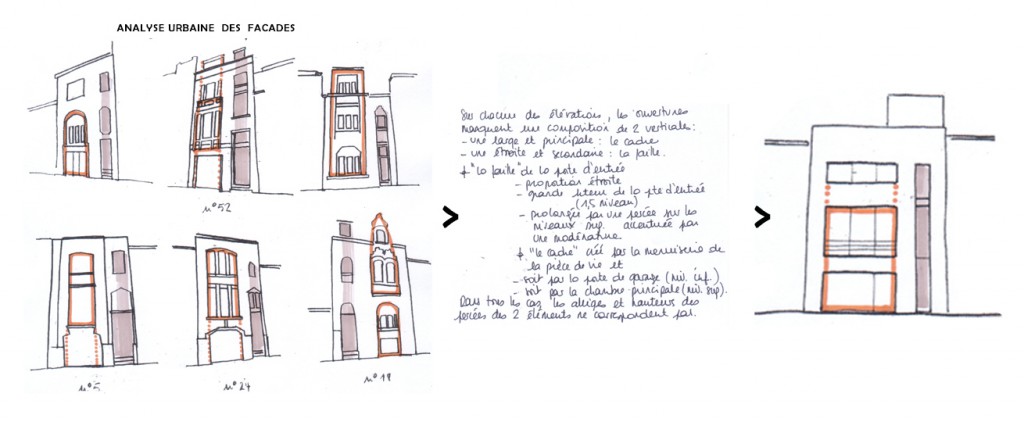 ANALYSE URBAINE DES FACADES
n°52
n°5
n°24
n°19
>
Sur chacune des élévations, les ouvertures
marquent une composition de 2 verticales:
- une large et principale : le cadre
- une étroite et secondaire : la faille.
"la faille" de la porte d'entrée
- proportion étroite
- grande hauteur de la pte d'entrée
(1,5 niveau)
- prolongée par une percée sur les
niveaux sup. accentuée par
une modénature
"le cadre" créé par la menuiserie de
la pièce de vie et
- soit par la porte de garage (niv. inf.)
- soit par la chambre principale (niv. sup).
Dans tous les cas, les allèges et hauteurs des
percées des 2 éléments ne correspondent pas.
>